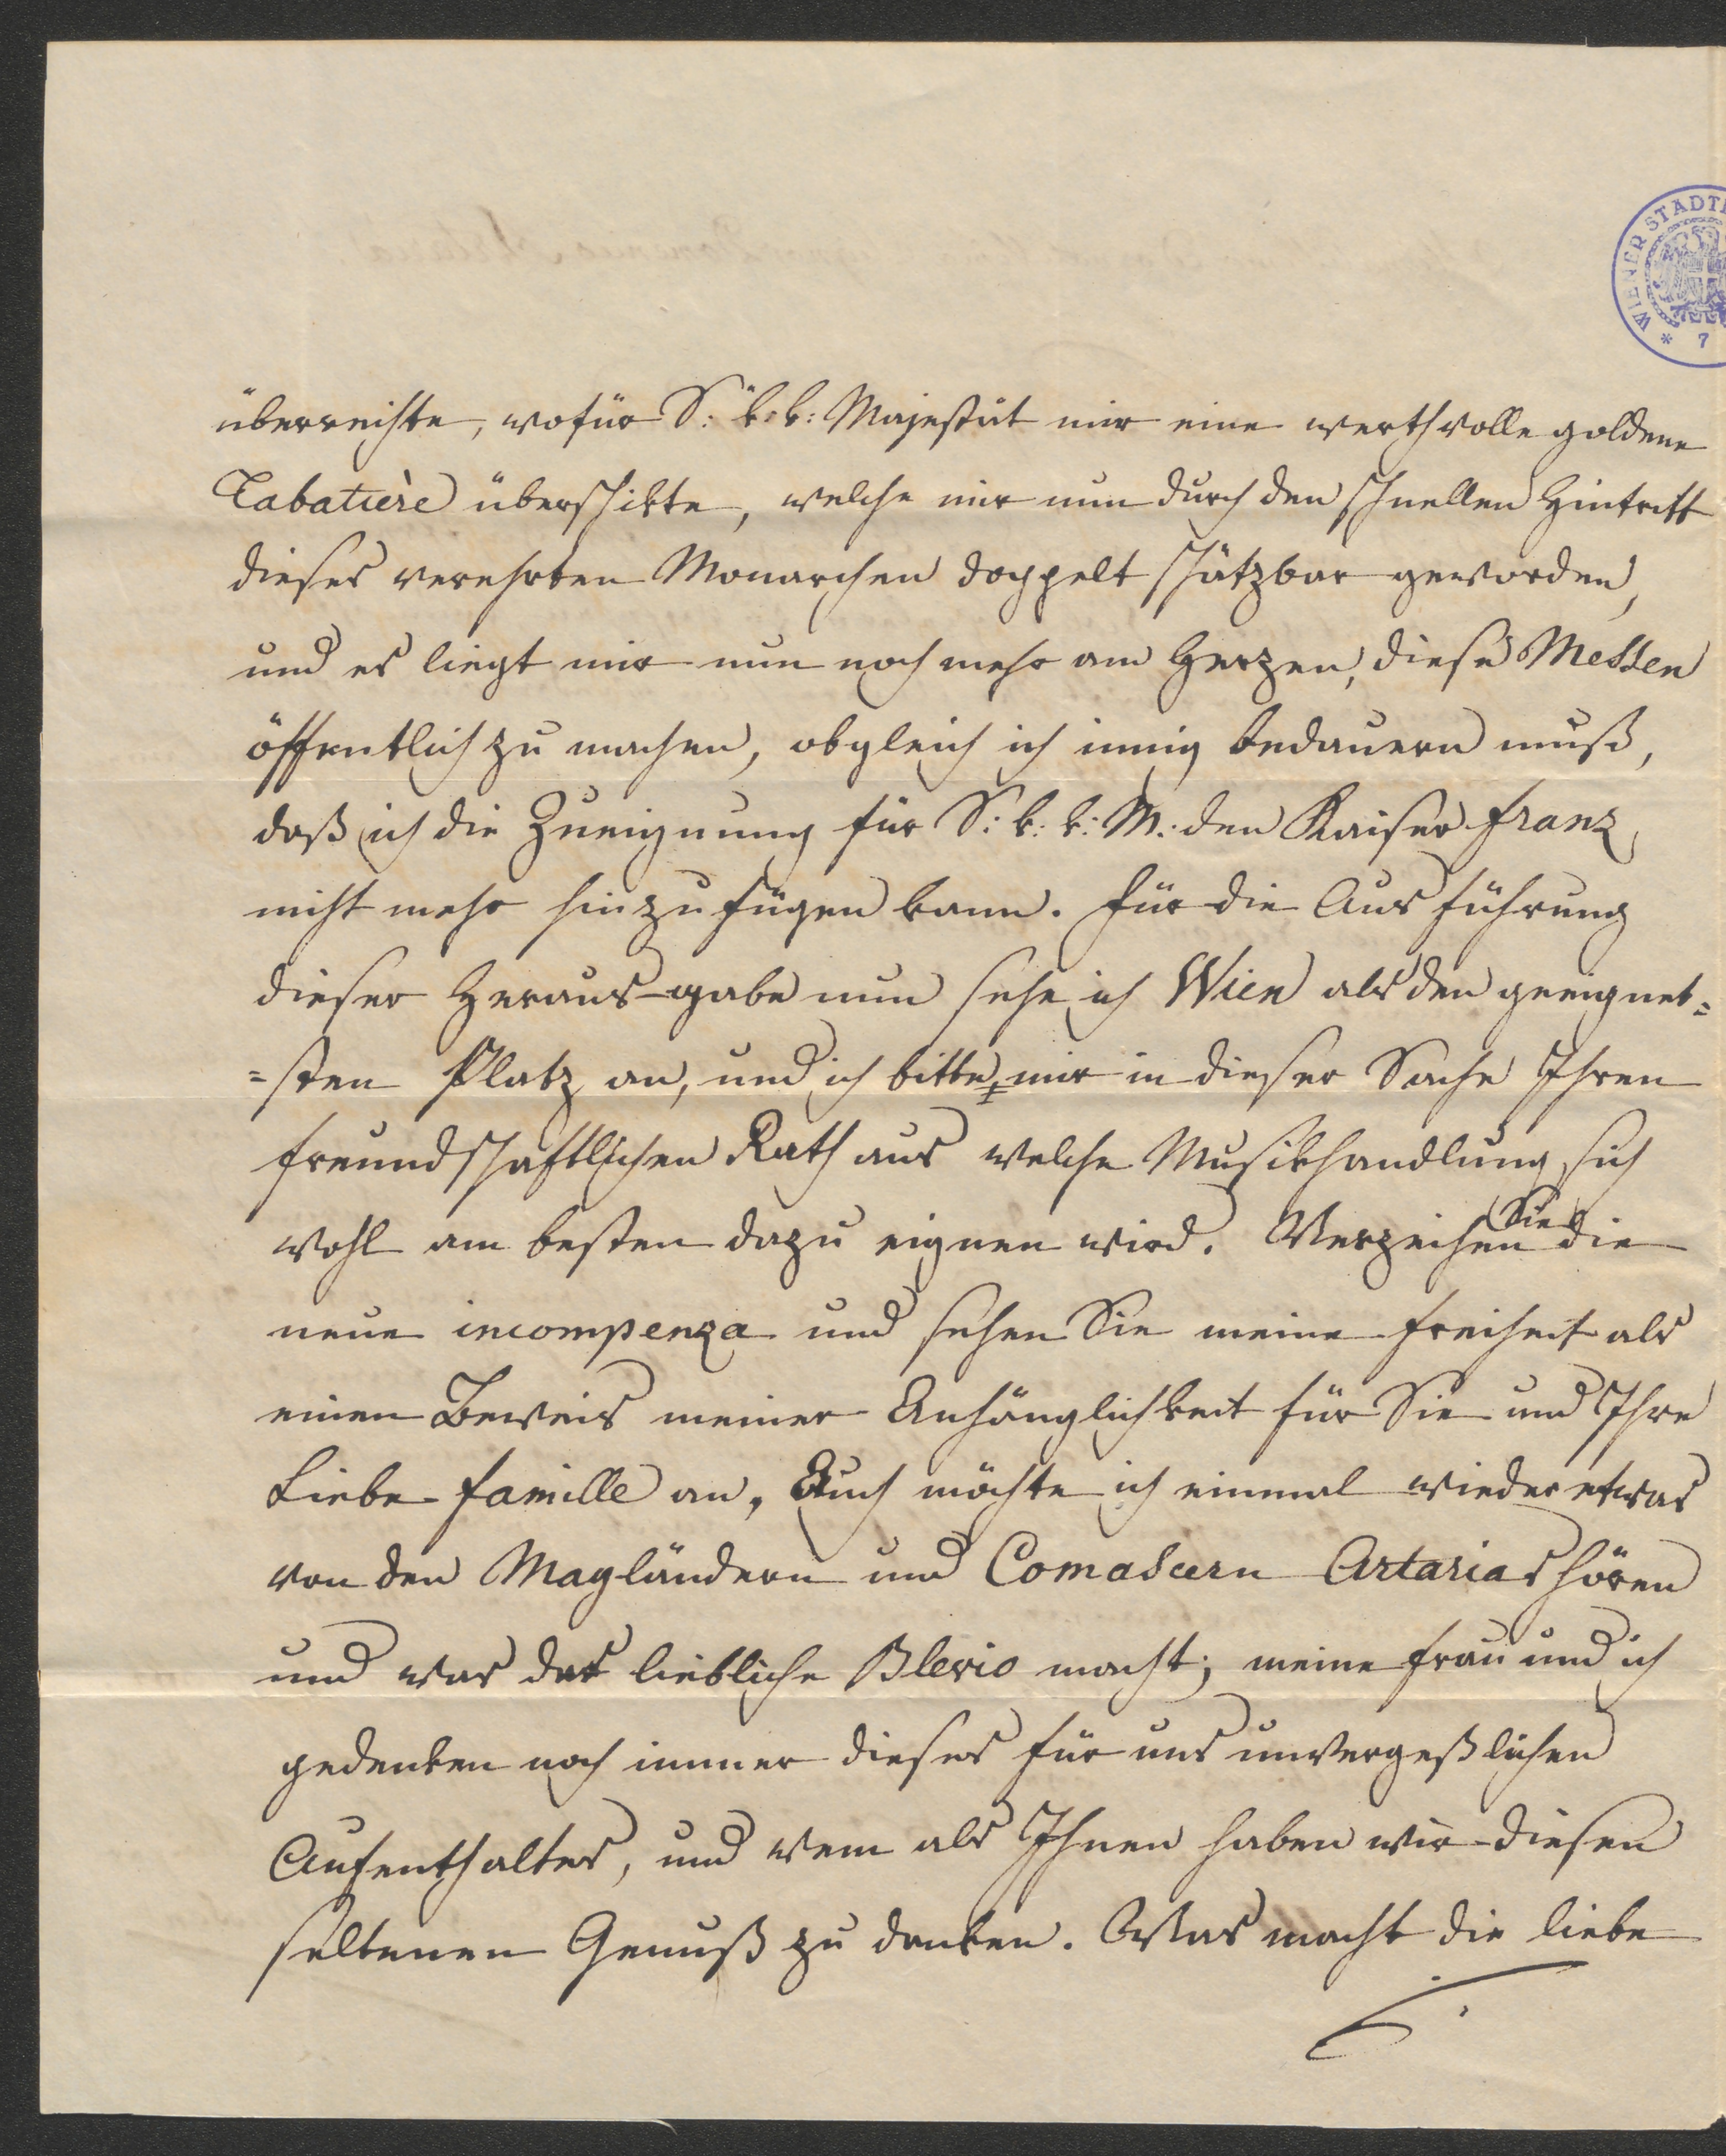 WIENER STADT
* 7
überreichte, wofür S: k: k: Majestät mir eine werthvolle goldene
Tabatière überschikte, welche mir nun durch den schnellen Hintritt
dieses verehrten Monarchen doppelt schätzbar geworden,
und es liegt mir nun noch mehr am Herzen, diese Messen
öffentlich zu machen, obgleich ich innig bedauern muß,
daß ich die Zueignung für S: k: k: M: den Kaiser Franz
nicht mehr hinzufügen kann. Für die Ausführung
dieser Heraus-gabe nun sehe ich Wien als den geeignet=
=sten Platz an, und ich bitte, mir in dieser Sache Ihren
freundschaftlichen Rath aus welche Musikhandlung sich
wohl am besten dazu eignen wird. Verzeihen Sie die
neue incompenza und sehen Sie meine Freiheit als
einen Beweis meiner Anhänglichkeit für Sie und Ihre
Liebe famille an, Auch möchte ich einmal wieder etwas
von den Mayländern und Comascern Artarias hören
und was das liebliche Blevio macht; meine Frau und ich
gedenken noch immer dieses für uns unvergeßlichen
Aufenthaltes, und wem als Ihnen haben wir diesen
seltenen Genuß zu danken. Was macht die liebe